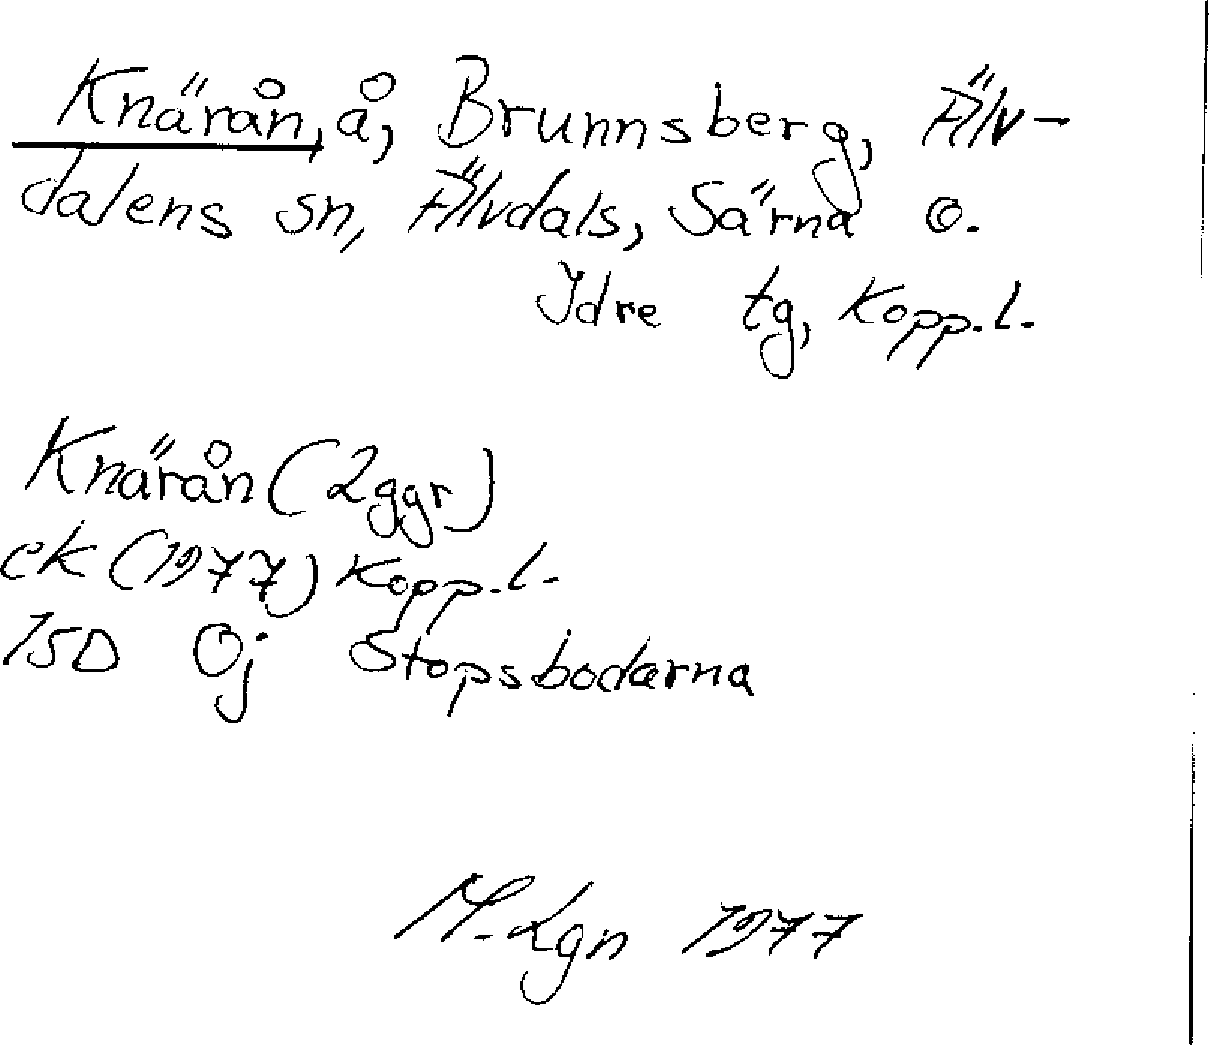 Knärån, å, Brunnsberg, Älv-
dalens sn, Älvdals, Särna o.
Idre tg, Kopp.l.
Knärån (2ggr)
ek (1977) Kopp.l.
15D 0j Stopsbodarna
M. Lgn 1977